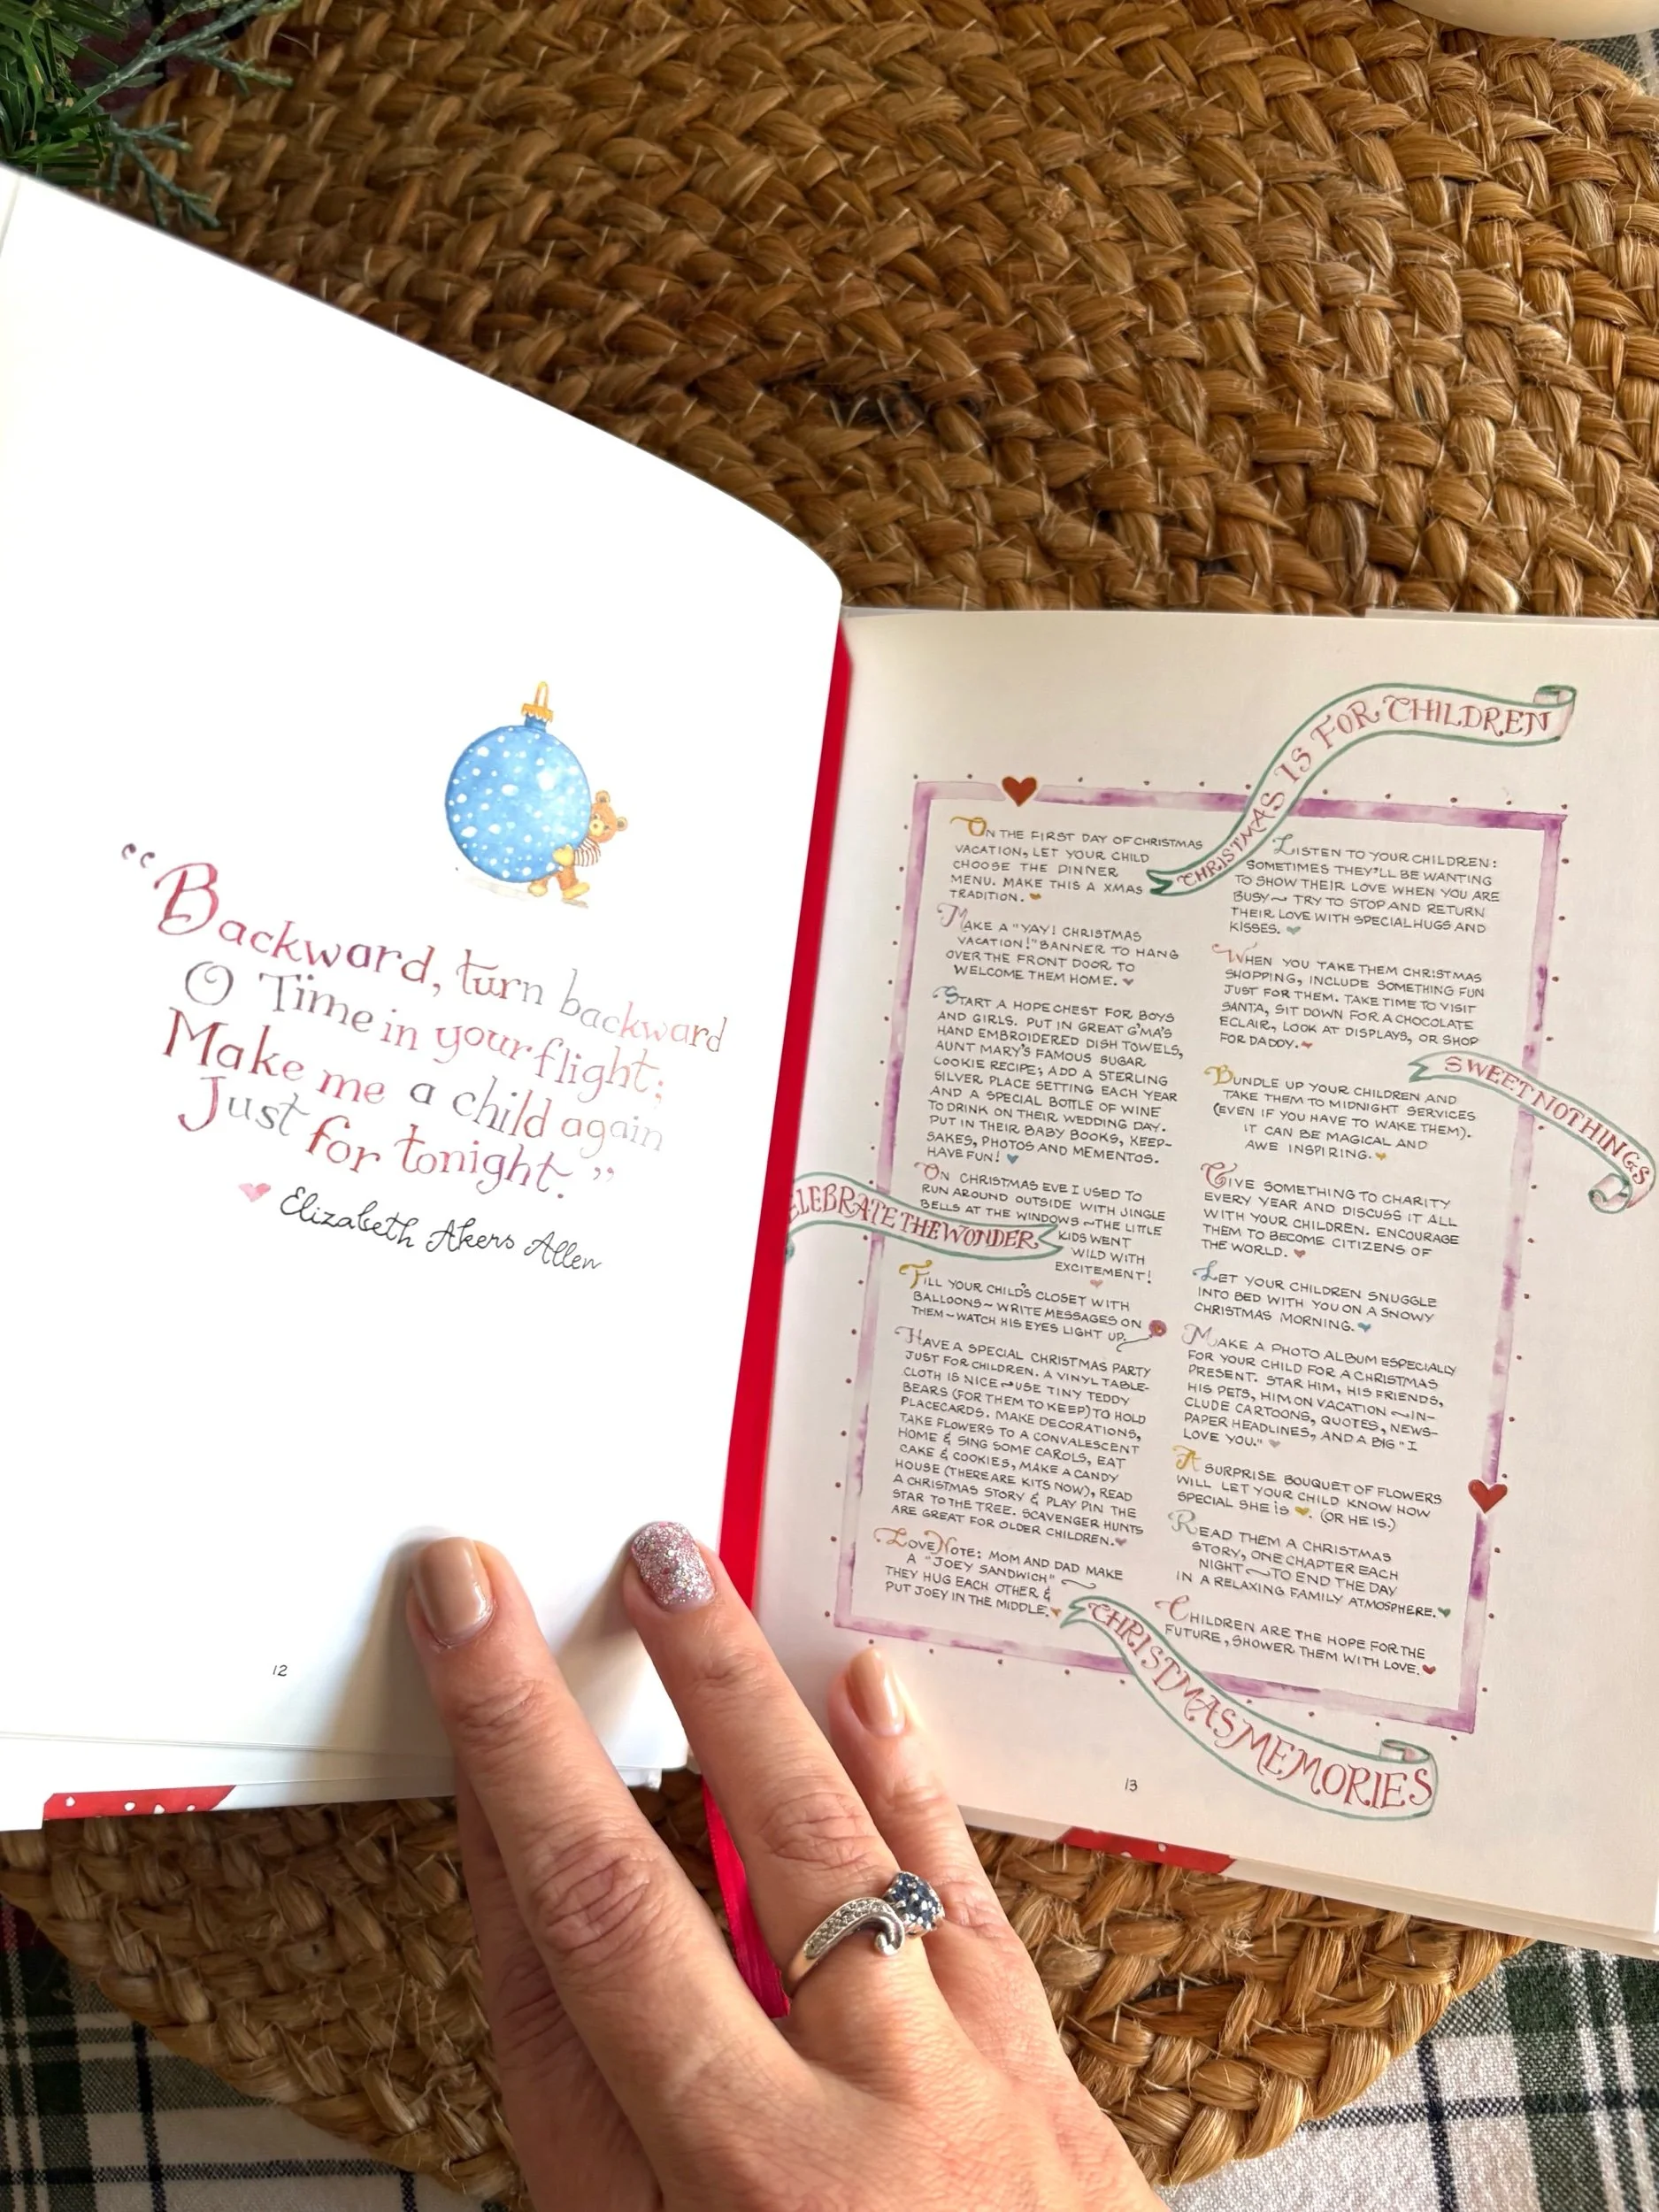 “Backward, turn backward
O Time in your flight;
Make me a child again
Just for tonight.”
Elizabeth Akers Allen
12
CHRISTMAS IS FOR CHILDREN
ON THE FIRST DAY OF CHRISTMAS
VACATION, LET YOUR CHILD
CHOOSE THE DINNER
MENU. MAKE THIS A XMAS
TRADITION.
MAKE A "YAY! CHRISTMAS
VACATION!" BANNER TO HANG
OVER THE FRONT DOOR TO
WELCOME THEM HOME.
START A HOPE CHEST FOR BOYS
AND GIRLS. PUT IN GREAT G'MA'S
HAND EMBROIDERED DISH TOWELS,
AUNT MARY'S FAMOUS SUGAR
COOKIE RECIPE; ADD A STERLING
SILVER PLACE SETTING EACH YEAR
AND A SPECIAL BOTTLE OF WINE
TO DRINK ON THEIR WEDDING DAY.
PUT IN THEIR BABY BOOKS, KEEP-
SAKES, PHOTOS AND MEMENTOS.
HAVE FUN!
ON CHRISTMAS EVE I USED TO
RUN AROUND OUTSIDE WITH JINGLE
BELLS AT THE WINDOWS ~ THE LITTLE
KIDS WENT
WILD WITH
EXCITEMENT!
ELEBRATE THE WONDER
FILL YOUR CHILD'S CLOSET WITH
BALLOONS ~ WRITE MESSAGES ON
THEM ~ WATCH HIS EYES LIGHT UP.
HAVE A SPECIAL CHRISTMAS PARTY
JUST FOR CHILDREN. A VINYL TABLE-
CLOTH IS NICE ~ USE TINY TEDDY
BEARS (FOR THEM TO KEEP) TO HOLD
PLACECARDS. MAKE DECORATIONS,
TAKE FLOWERS TO A CONVALESCENT
HOME & SING SOME CAROLS, EAT
CAKE & COOKIES, MAKE A CANDY
HOUSE (THERE ARE KITS NOW), READ
A CHRISTMAS STORY & PLAY PIN THE
STAR TO THE TREE. SCAVENGER HUNTS
ARE GREAT FOR OLDER CHILDREN.
LOVE NOTE: MOM AND DAD MAKE
A "JOEY SANDWICH" ~
THEY HUG EACH OTHER &
PUT JOEY IN THE MIDDLE.
LISTEN TO YOUR CHILDREN:
SOMETIMES THEY'LL BE WANTING
TO SHOW THEIR LOVE WHEN YOU ARE
BUSY ~ TRY TO STOP AND RETURN
THEIR LOVE WITH SPECIAL HUGS AND
KISSES.
WHEN YOU TAKE THEM CHRISTMAS
SHOPPING, INCLUDE SOMETHING FUN
JUST FOR THEM. TAKE TIME TO VISIT
SANTA, SIT DOWN FOR A CHOCOLATE
ECLAIR, LOOK AT DISPLAYS, OR SHOP
FOR DADDY.
SWEET NOTHINGS
BUNDLE UP YOUR CHILDREN AND
TAKE THEM TO MIDNIGHT SERVICES
(EVEN IF YOU HAVE TO WAKE THEM).
IT CAN BE MAGICAL AND
AWE INSPIRING.
GIVE SOMETHING TO CHARITY
EVERY YEAR AND DISCUSS IT ALL
WITH YOUR CHILDREN. ENCOURAGE
THEM TO BECOME CITIZENS OF
THE WORLD.
LET YOUR CHILDREN SNUGGLE
INTO BED WITH YOU ON A SNOWY
CHRISTMAS MORNING.
MAKE A PHOTO ALBUM ESPECIALLY
FOR YOUR CHILD FOR A CHRISTMAS
PRESENT. STAR HIM, HIS FRIENDS,
HIS PETS, HIM ON VACATION ~ IN-
CLUDE CARTOONS, QUOTES, NEWS-
PAPER HEADLINES, AND A BIG "I
LOVE YOU."
A SURPRISE BOUQUET OF FLOWERS
WILL LET YOUR CHILD KNOW HOW
SPECIAL SHE IS. (OR HE IS.)
READ THEM A CHRISTMAS
STORY, ONE CHAPTER EACH
NIGHT ~ TO END THE DAY
IN A RELAXING FAMILY ATMOSPHERE.
CHILDREN ARE THE HOPE FOR THE
FUTURE, SHOWER THEM WITH LOVE.
CHRISTMAS MEMORIES
13